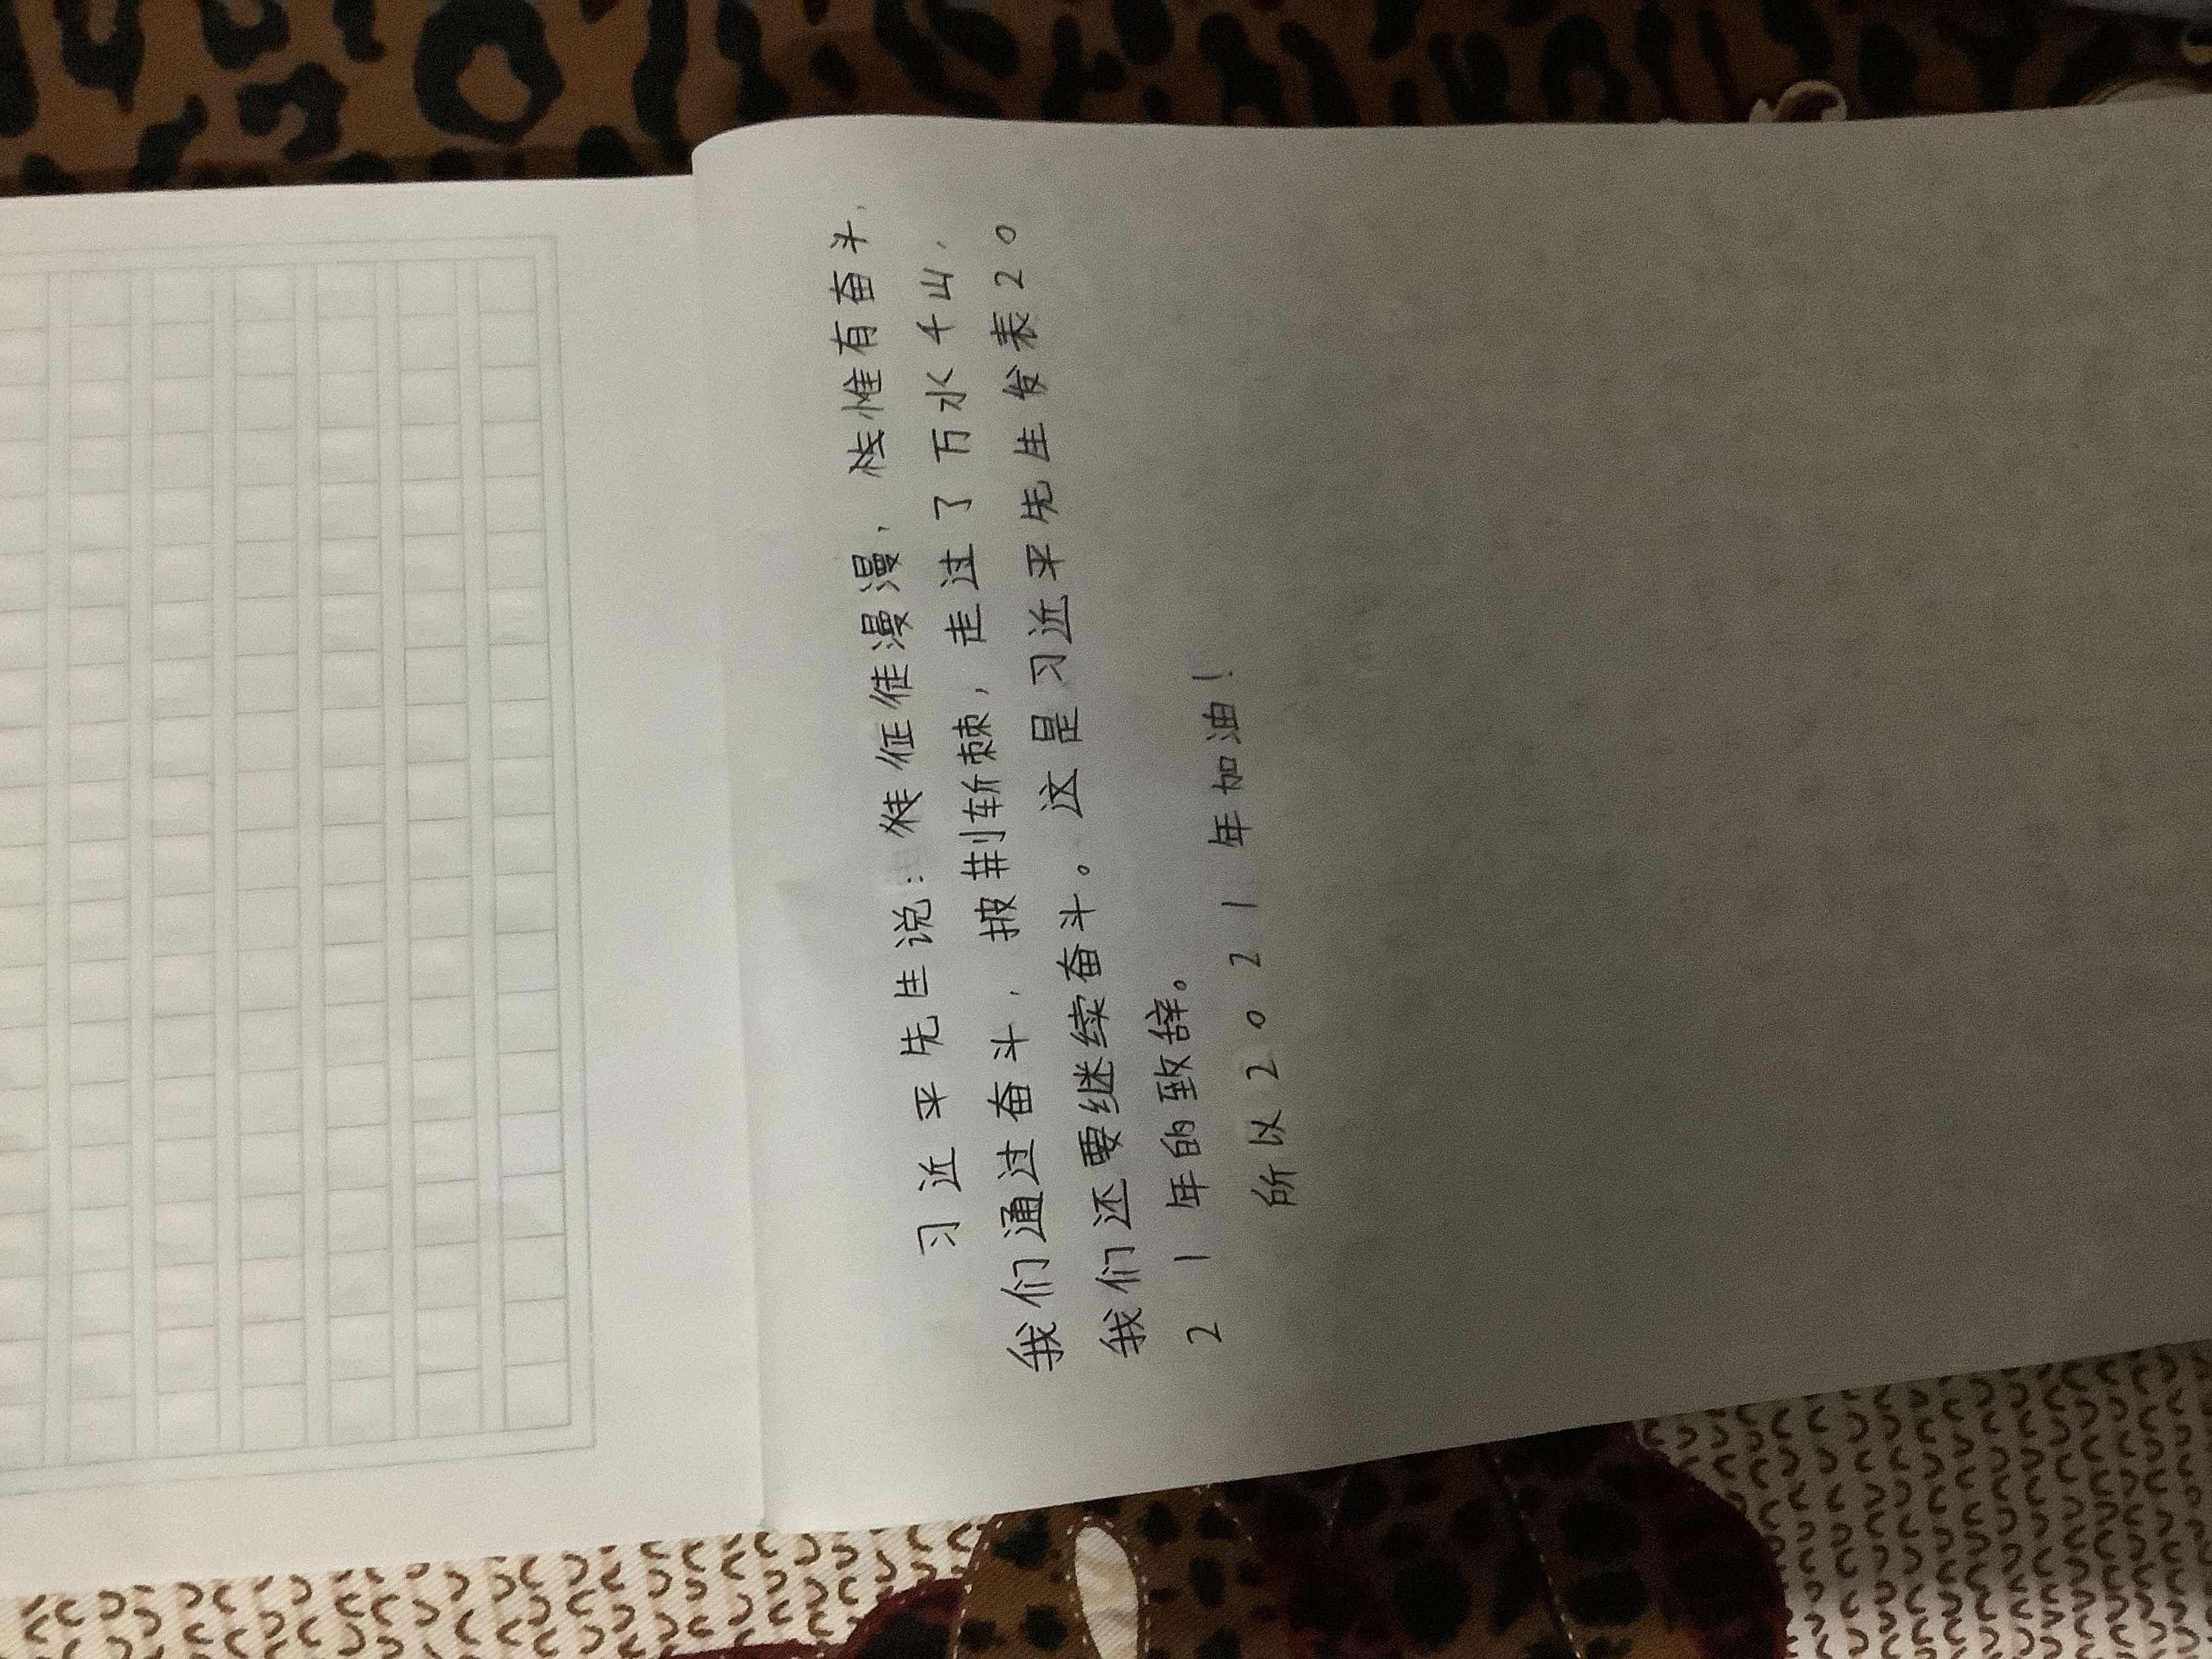 习近平先生说：征徒漫漫，惟有奋斗.
我们通过奋斗，披荆斩棘，走过了万水千山.
我们还要继续奋斗。这是习近平先生发表20
21年的致辞。
所以2021年加油！